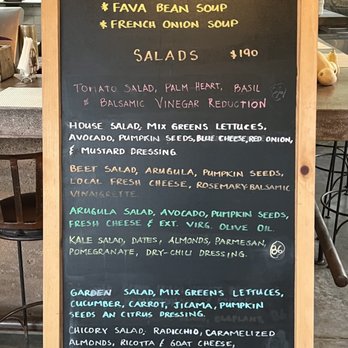 * FAVA BEAN SOUP
* FRENCH ONION SOUP
SALADS $190
TOMATO SALAD, PALM HEART, BASIL
& BALSAMIC VINEGAR REDUCTION
HOUSE SALAD, MIX GREENS LETTUCES,
AVOCADO, PUMPKIN SEEDS, BLUE CHEESE, RED ONION,
& MUSTARD DRESSING.
BEET SALAD, ARUGULA, PUMPKIN SEEDS,
LOCAL FRESH CHEESE, ROSEMARY-BALSAMIC
VINAIGRETTE.
ARUGULA SALAD, AVOCADO, PUMPKIN SEEDS,
FRESH CHEESE & EXT. VIRG. OLIVE OIL.
KALE SALAD, DATES, ALMONDS, PARMESAN, 86
POMEGRANATE, DRY-CHILI DRESSING.
GARDEN SALAD, MIX GREENS LETTUCES,
CUCUMBER, CARROT, JICAMA, PUMPKIN
SEEDS AN CITRUS DRESSING.
CHICORY SALAD, RADICCHIO, CARAMELIZED
ALMONDS, RICOTTA & GOAT CHEESE,